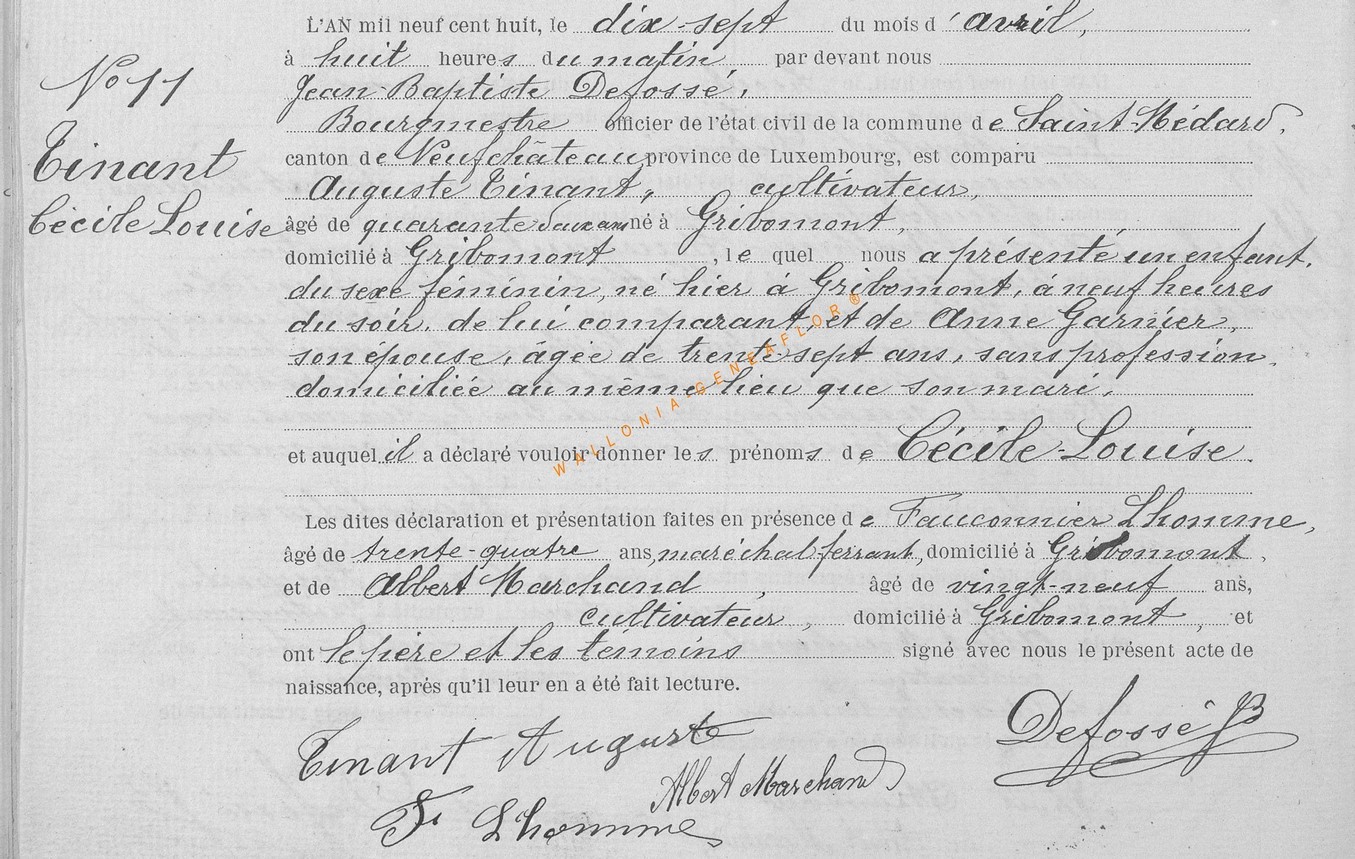 L'AN mil neuf cent huit, le dix-sept du mois d'avril,
à huit heures du matin par devant nous
Jean-Baptiste Defossé,
Bourgmestre officier de l'état civil de la commune de Saint-Médard,
canton de Neufchâteau, province de Luxembourg, est comparu
Auguste Tinant, cultivateur,
âgé de quarante deux ans né à Gribomont,
domicilié à Gribomont, le quel nous a présenté un enfant,
du sexe féminin, né hier à Gribomont, à neuf heures
du soir, de lui comparant, et de Anne Garnier,
son épouse, âgée de trente-sept ans, sans profession,
domiciliée au même lieu que son mari,
et auquel il a déclaré vouloir donner les prénoms de Cécile-Louise.
Les dites déclaration et présentation faites en présence de Fauconnier Lhomme,
âgé de trente-quatre ans, maréchal ferrant, domicilié à Gribomont,
et de Albert Marchand, âgé de vingt-neuf ans,
cultivateur, domicilié à Gribomont, et
ont le père et les témoins signé avec nous le présent acte de
naissance, après qu'il leur en a été fait lecture.
Tinant Auguste
Albert Marchand
Defossé JB
F. Lhomme
No 11
Tinant
Cécile Louise
WALLONIA GENEAFLOR ®